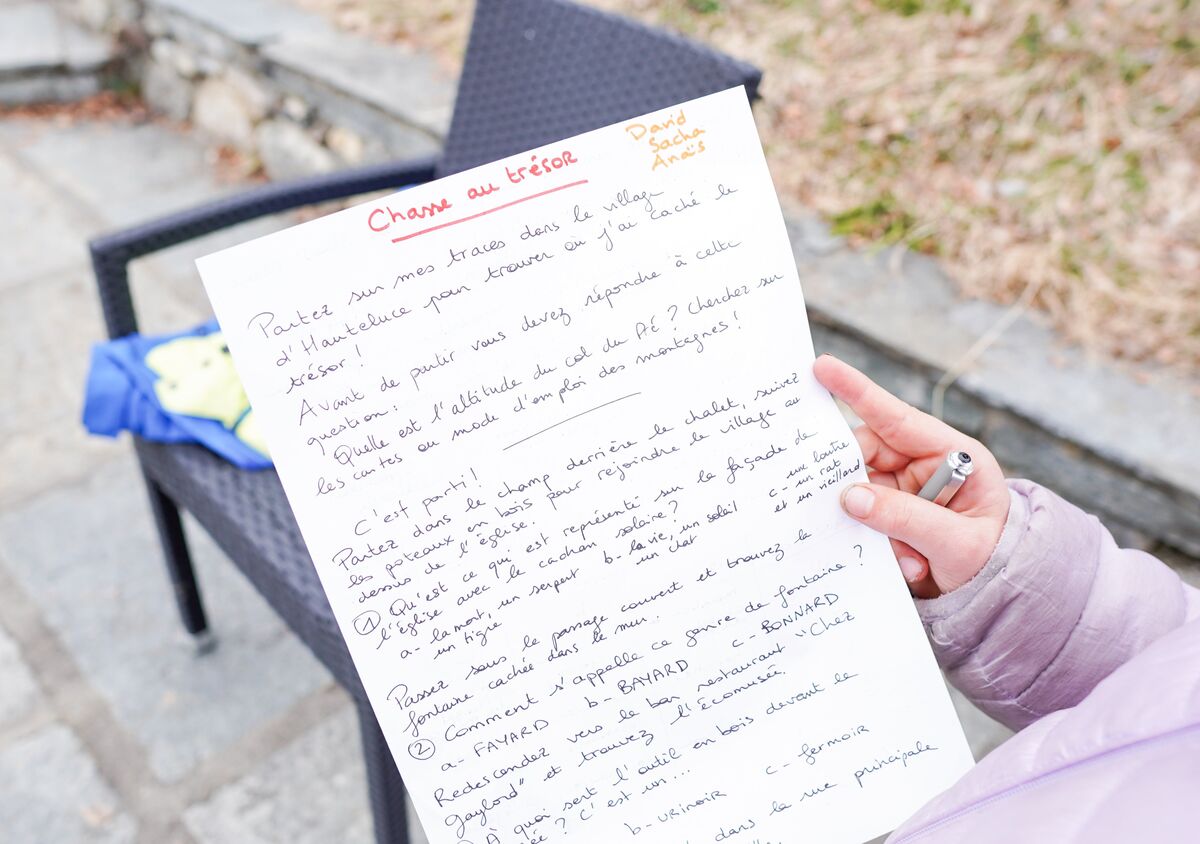 Chasse au trésor
David
Sacha
Anaïs
Partez sur mes traces dans le village
d'Hauteluce pour trouver où j'ai caché le
trésor !
Avant de partir vous devez répondre à cette
question :
Quelle est l'altitude du col du Pé ? Cherchez sur
les cartes ou mode d'emploi des montagnes !
C'est parti !
Partez dans le champ derrière le chalet, suivez
les poteaux en bois pour rejoindre le village au
dessus de l'église.
① Qu'est ce qui est représenté sur la façade de
l'église avec le cachan solaire ?
a- la mort, un serpent b- la vie, un soleil c- une loutre
un tigre un chat un rat
et un vieillard
Passez sous le passage couvert et trouvez la
fontaine cachée dans le mur.
② Comment s'appelle ce genre de fontaine ?
a- FAYARD b- BAYARD c- BONNARD
Redescendez vers le bar restaurant "Chez
Gaylord" et trouvez l'écomusée.
À quoi sert l'outil en bois devant le
ée ? C'est un ...
b- URINOIR c- fermoir
dans la rue principale